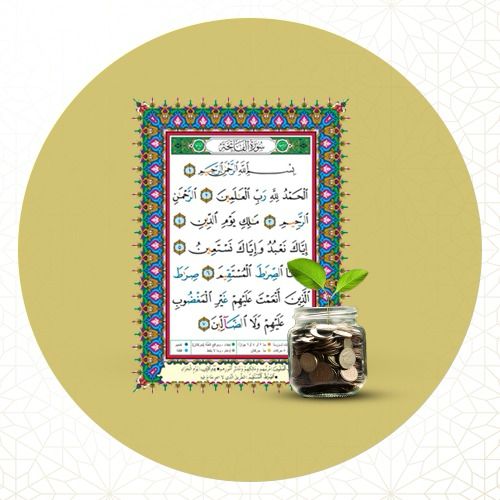 سُورَةُ الفَاتِحَة
بِسْمِ ٱللَّهِ ٱلرَّحْمَٰنِ ٱلرَّحِيمِ ١
ٱلْحَمْدُ لِلَّهِ رَبِّ ٱلْعَٰلَمِينَ ٢ ٱلرَّحْمَٰنِ
ٱلرَّحِيمِ ٣ مَٰلِكِ يَوْمِ ٱلدِّينِ ٤
إِيَّاكَ نَعْبُدُ وَإِيَّاكَ نَسْتَعِينُ ٥
ٱلصِّرَٰطَ ٱلْمُسْتَقِيمَ ٦ صِرَٰطَ
ٱلَّذِينَ أَنْعَمْتَ عَلَيْهِمْ غَيْرِ ٱلْمَغْضُوبِ
عَلَيْهِمْ وَلَا ٱلضَّآلِّينَ ٧